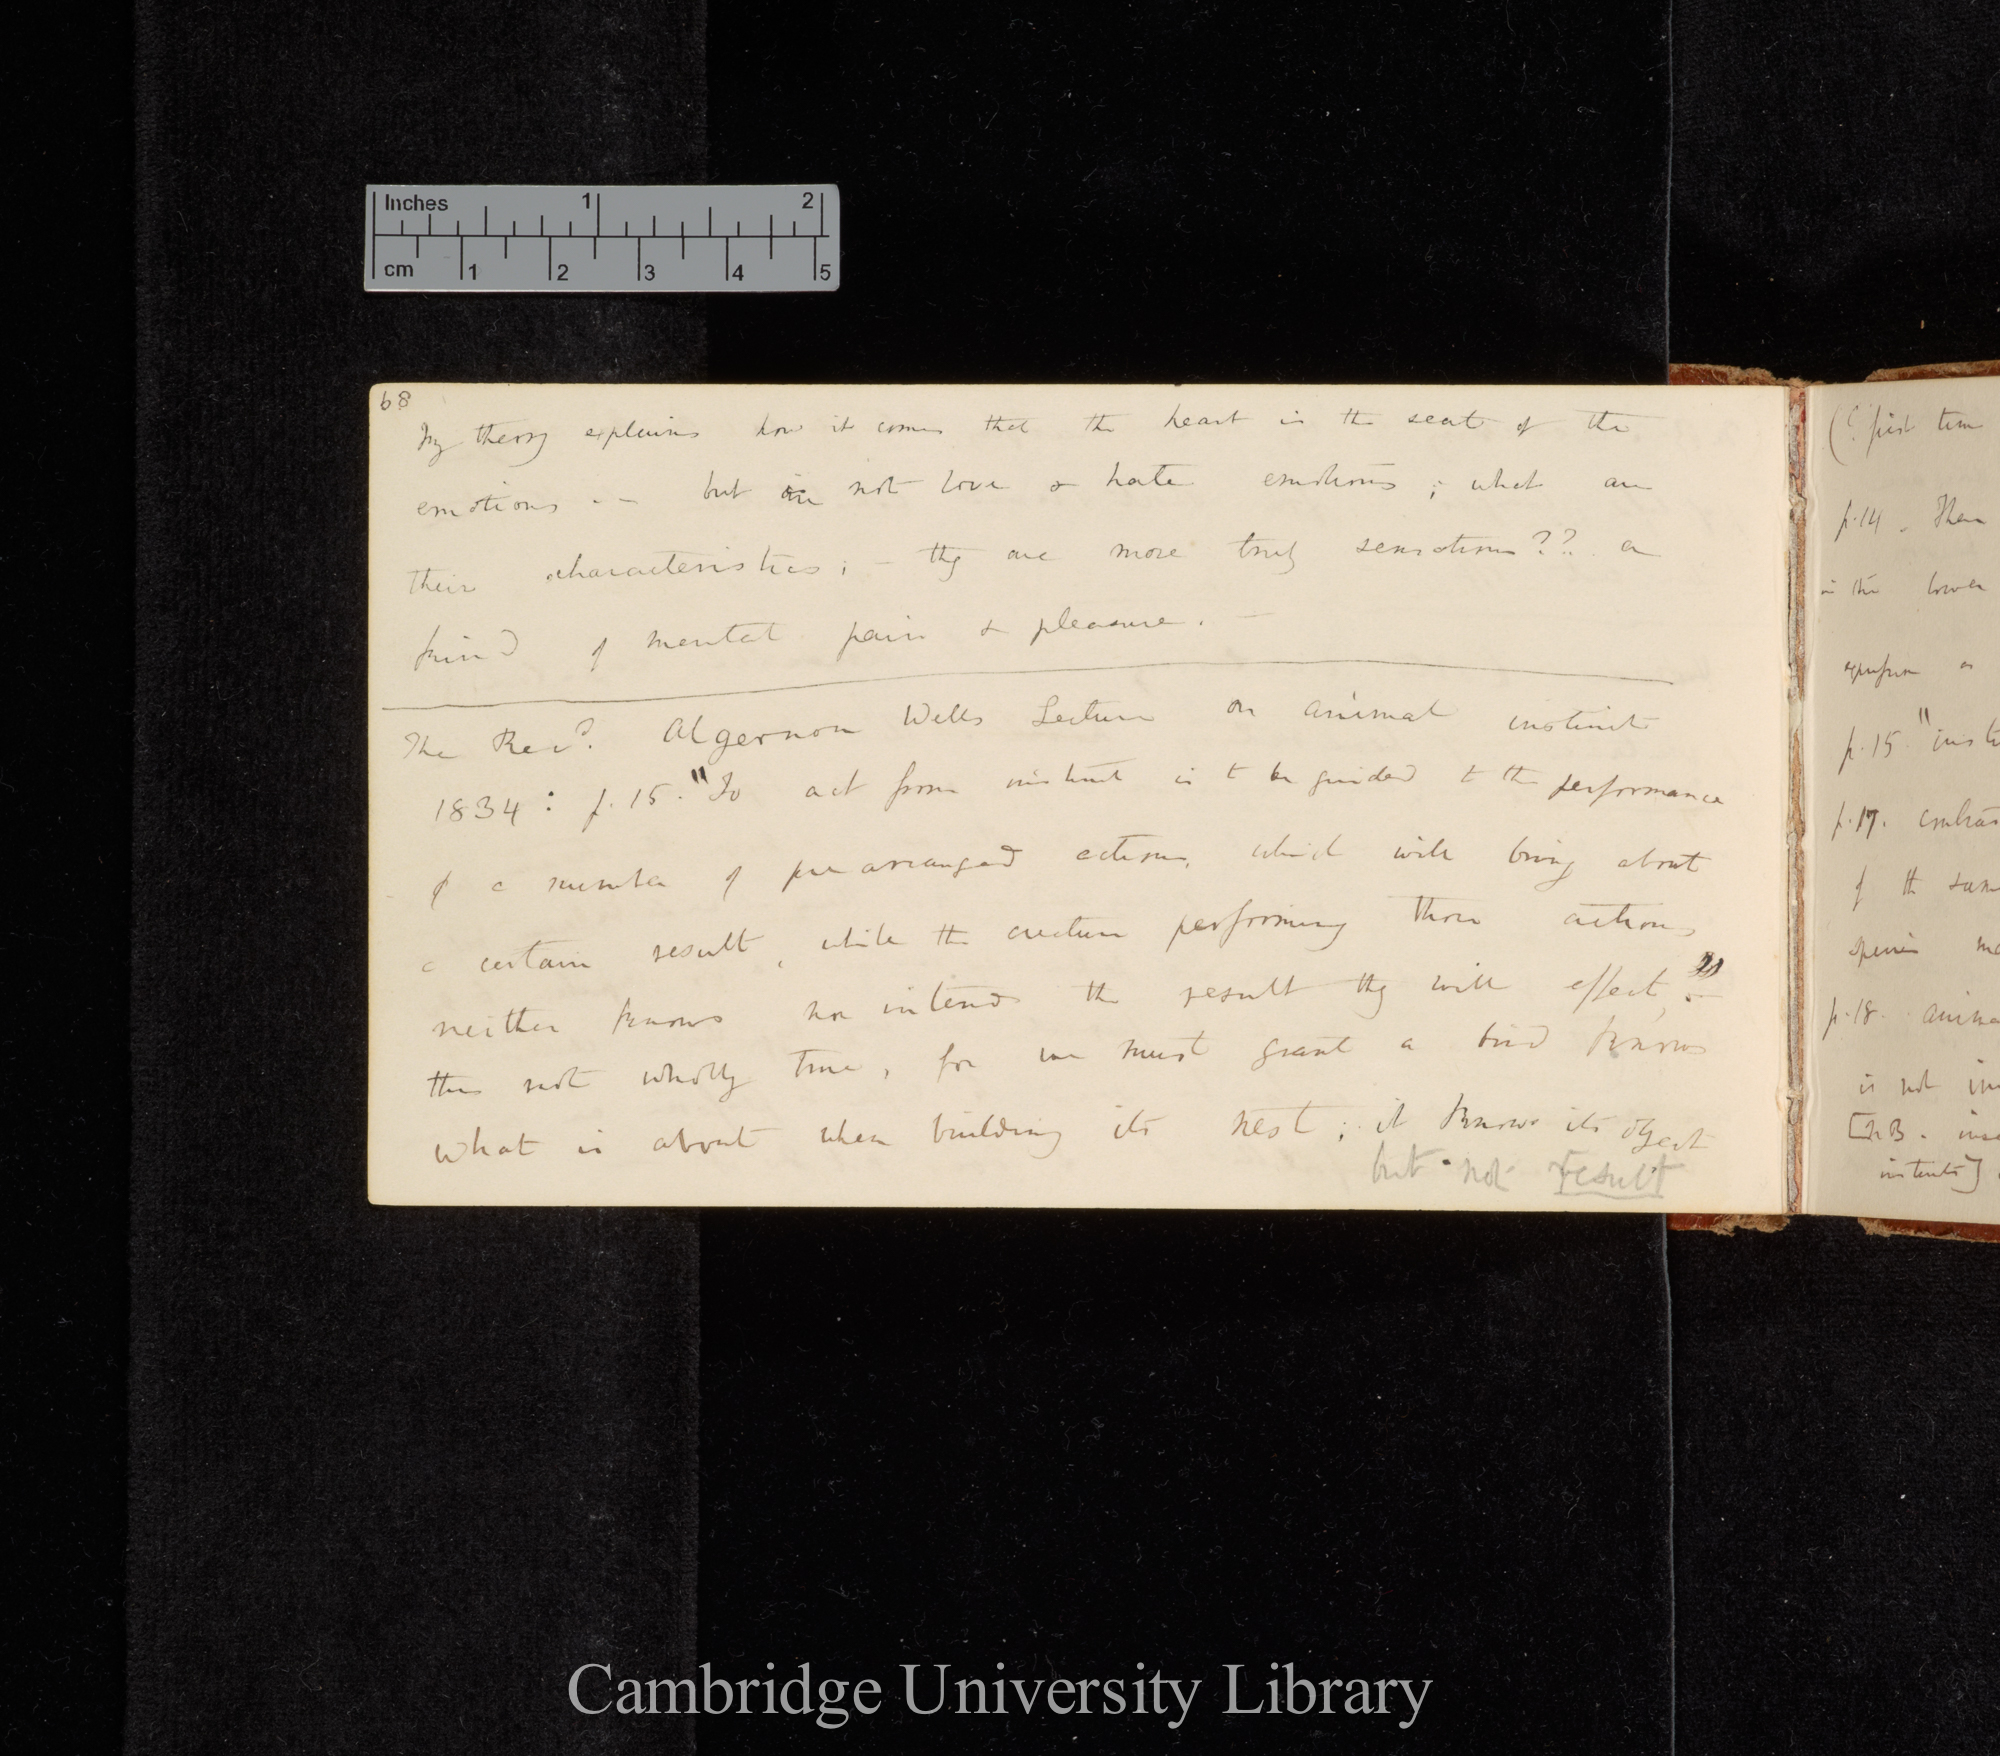 Inches 1 2
cm 1 2 3 4 5
68
My theory explains how it comes that the heart is the seat of the
emotions. — but are not love & hate emotions; what are
their characteristics; — they are more truly sensations?? a
kind of mental pain & pleasure. —
The Revd. Algernon Wells Lecture on animal instinct
1834: p. 15. "To act from instinct is to be guided to the performance
of a number of prearranged actions, which will bring about
a certain result, while the creature performing those actions
neither knows nor intends the result they will effect." —
this not wholly true, for we must grant a bird knows
what is about when building its nest; it knows its object
but not result
(? first time
p.14. There
in the lower
expression or
p.15 "
p.17.
of the same
species
p.18.
is not
[NB.
instincts]
Cambridge University Library